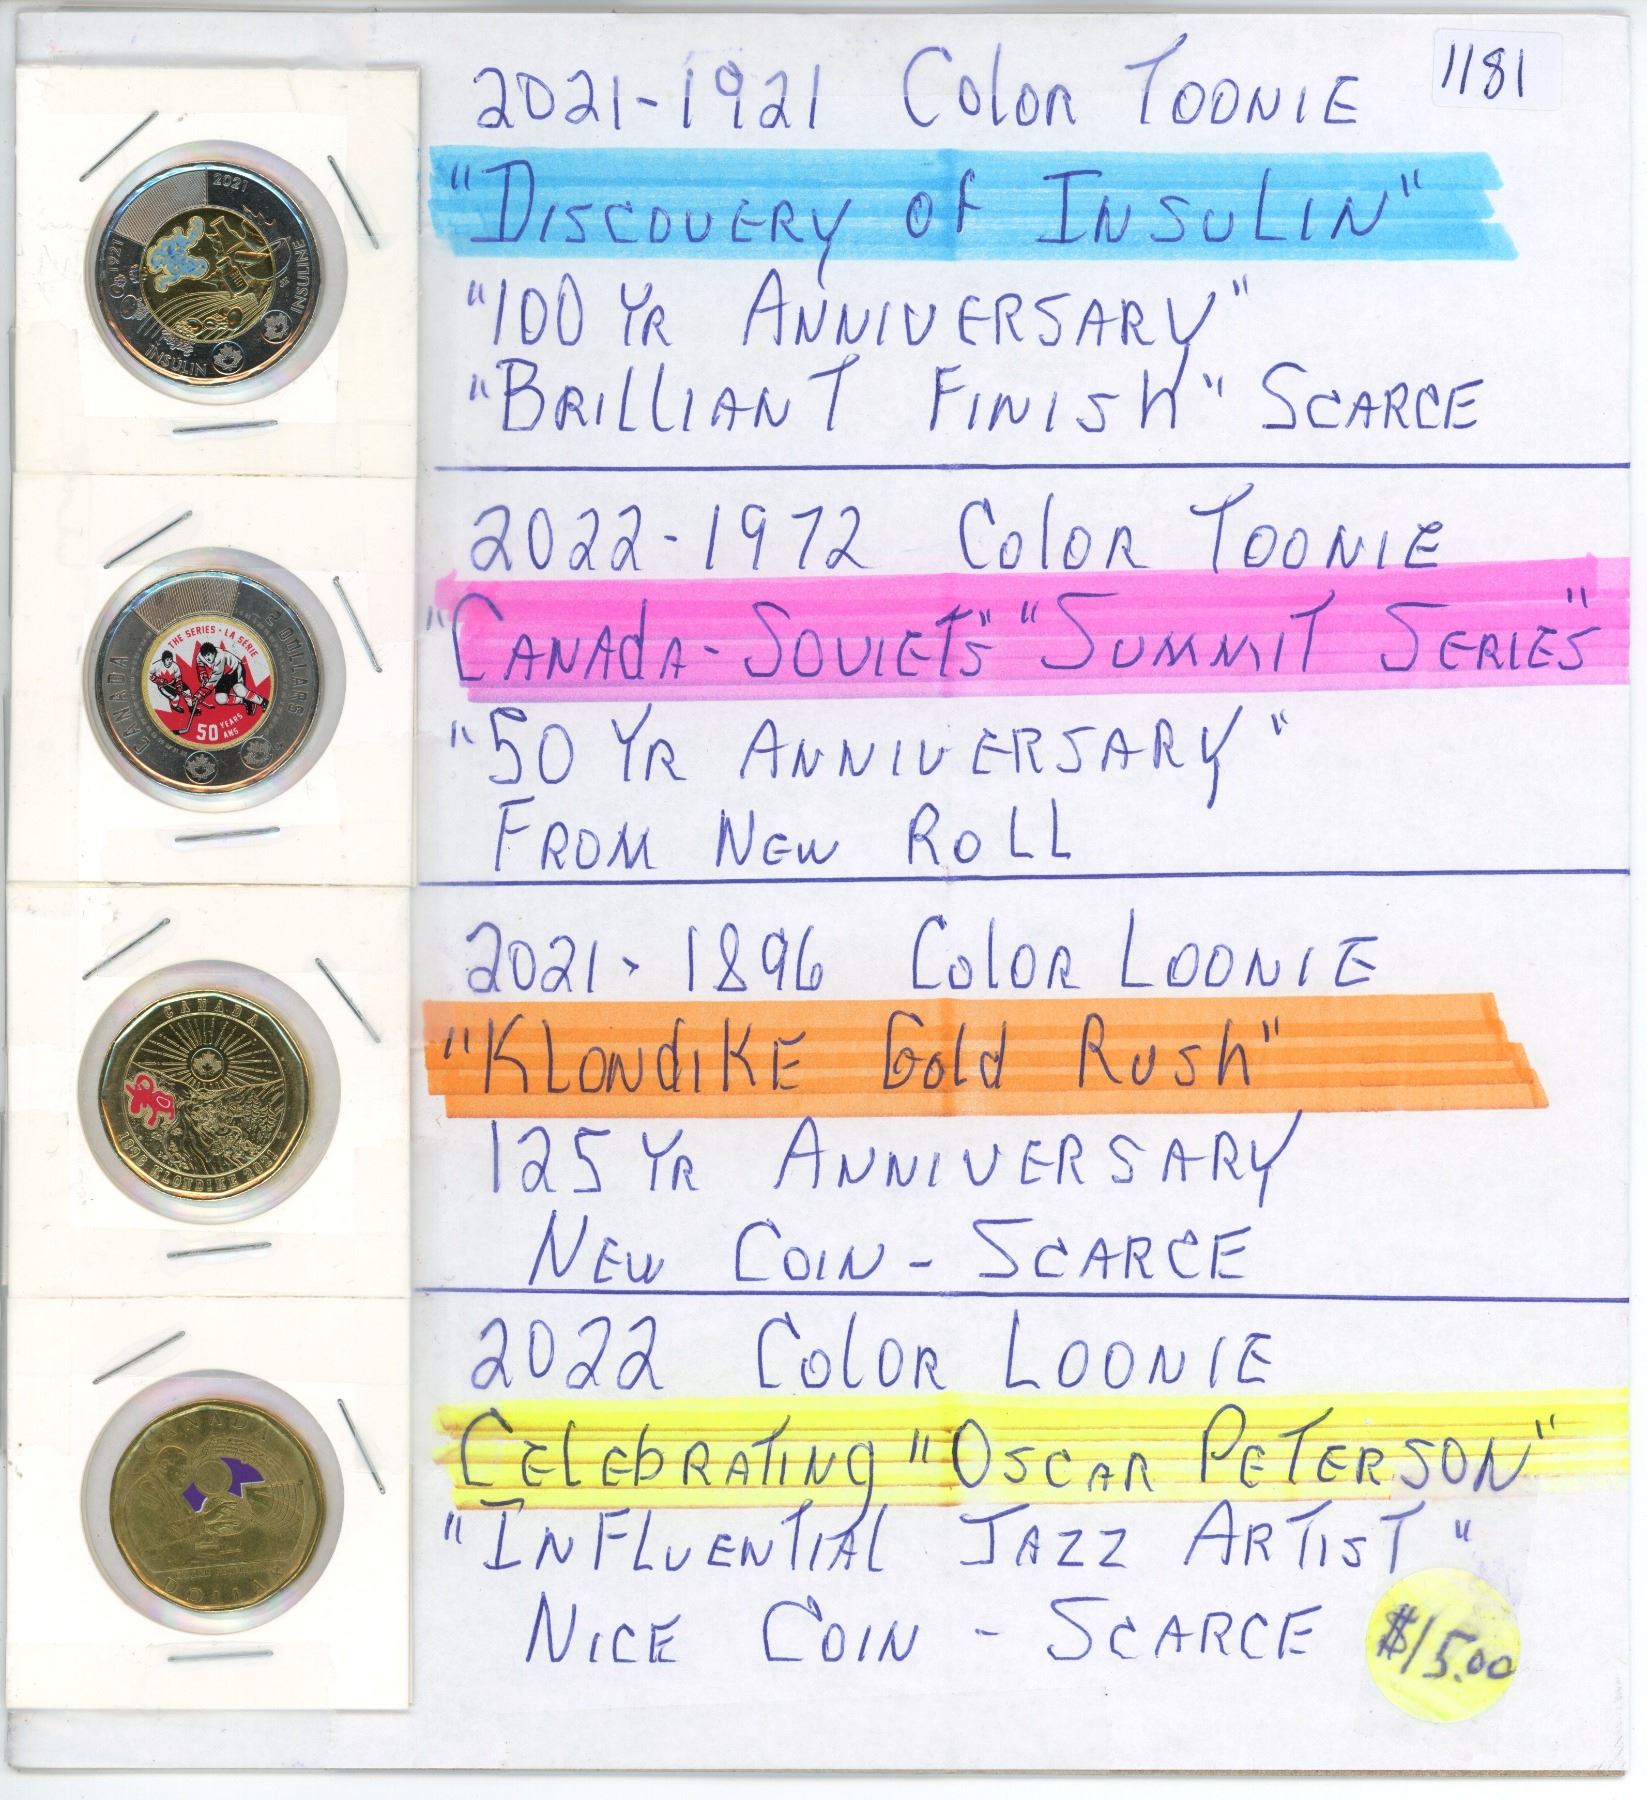 1181
2021-1921 Color Toonie
"Discovery of Insulin"
"100 Yr Anniversary"
"Brilliant Finish" Scarce
2021
1921
INSULINE
INSULIN
2022-1972 Color Toonie
"Canada-Soviets" "Summit Series"
"50 Yr Anniversary"
From New Roll
THE SERIES · LA SÉRIE
CANADA
2 DOLLARS
50 YEARS ANS
2021-1896 Color Loonie
"Klondike Gold Rush"
125 Yr Anniversary
New Coin - Scarce
CANADA
KLONDIKE 2021
2022 Color Loonie
Celebrating "Oscar Peterson"
"Influential Jazz Artist"
Nice Coin - Scarce
CANADA
DOLLAR
$15.00